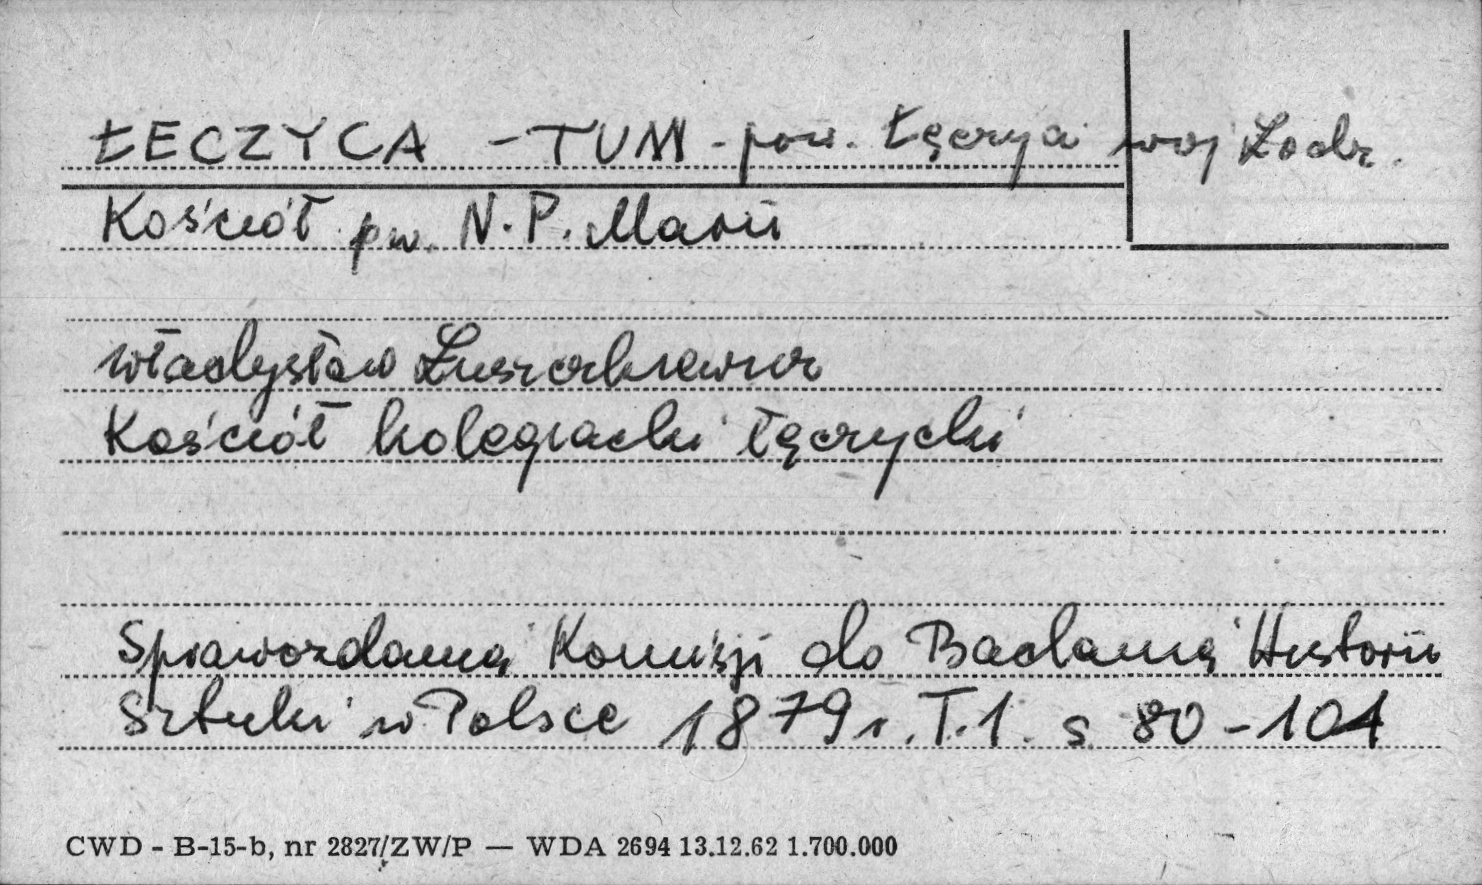 ŁECZYCA - TUM - pow. Łęczyca woj Łódz.
Kościół pw. N.P. Marii
Władysław Łuszczkiewicz
Kościół kolegiacki łęczycki
Sprawozdania Komisji do Badania Historii
Sztuki w Polsce 1879 r. T.1. s. 80-104
CWD - B-15-b, nr 2827/ZW/P — WDA 2694 13.12.62 1.700.000